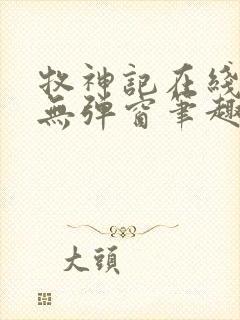 牧神記在綫
無彈窗筆趣
大頭